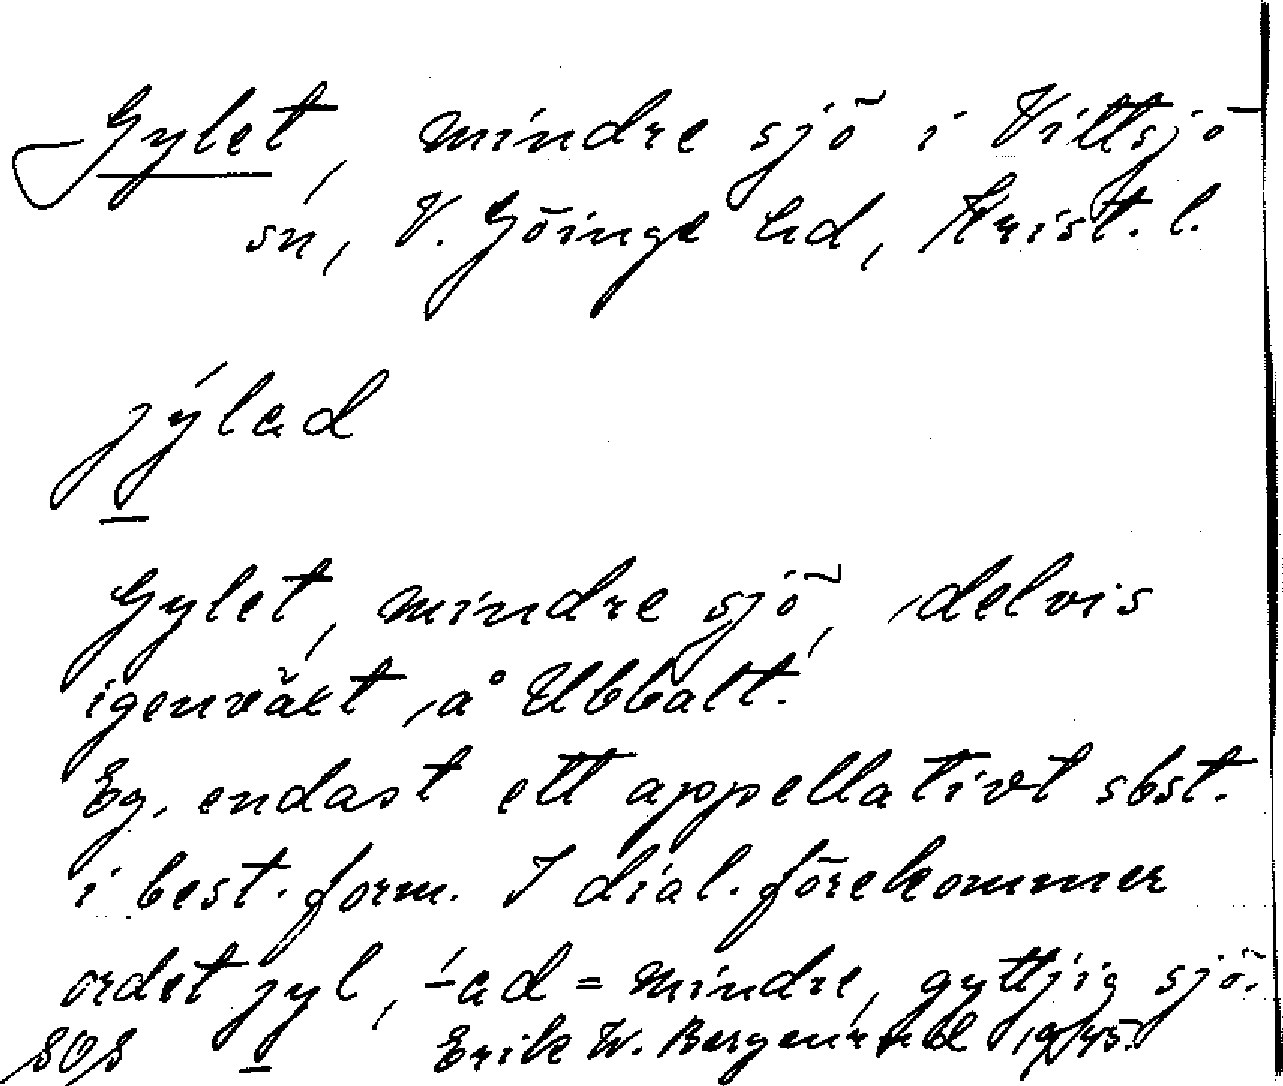 Gylet, mindre sjö i Vittsjö
sn, V. Göinge hd, Krist. l.
jýlad
Gylet, mindre sjö, delvis
igenväxt, å Ubbalt.
Eg. endast ett appellativt sbst.
i best. form. I dial. förekommer
ordet jyl, -́ad = mindre, gyttjig sjö.
SOS Erik W. Bergenådel 1945.